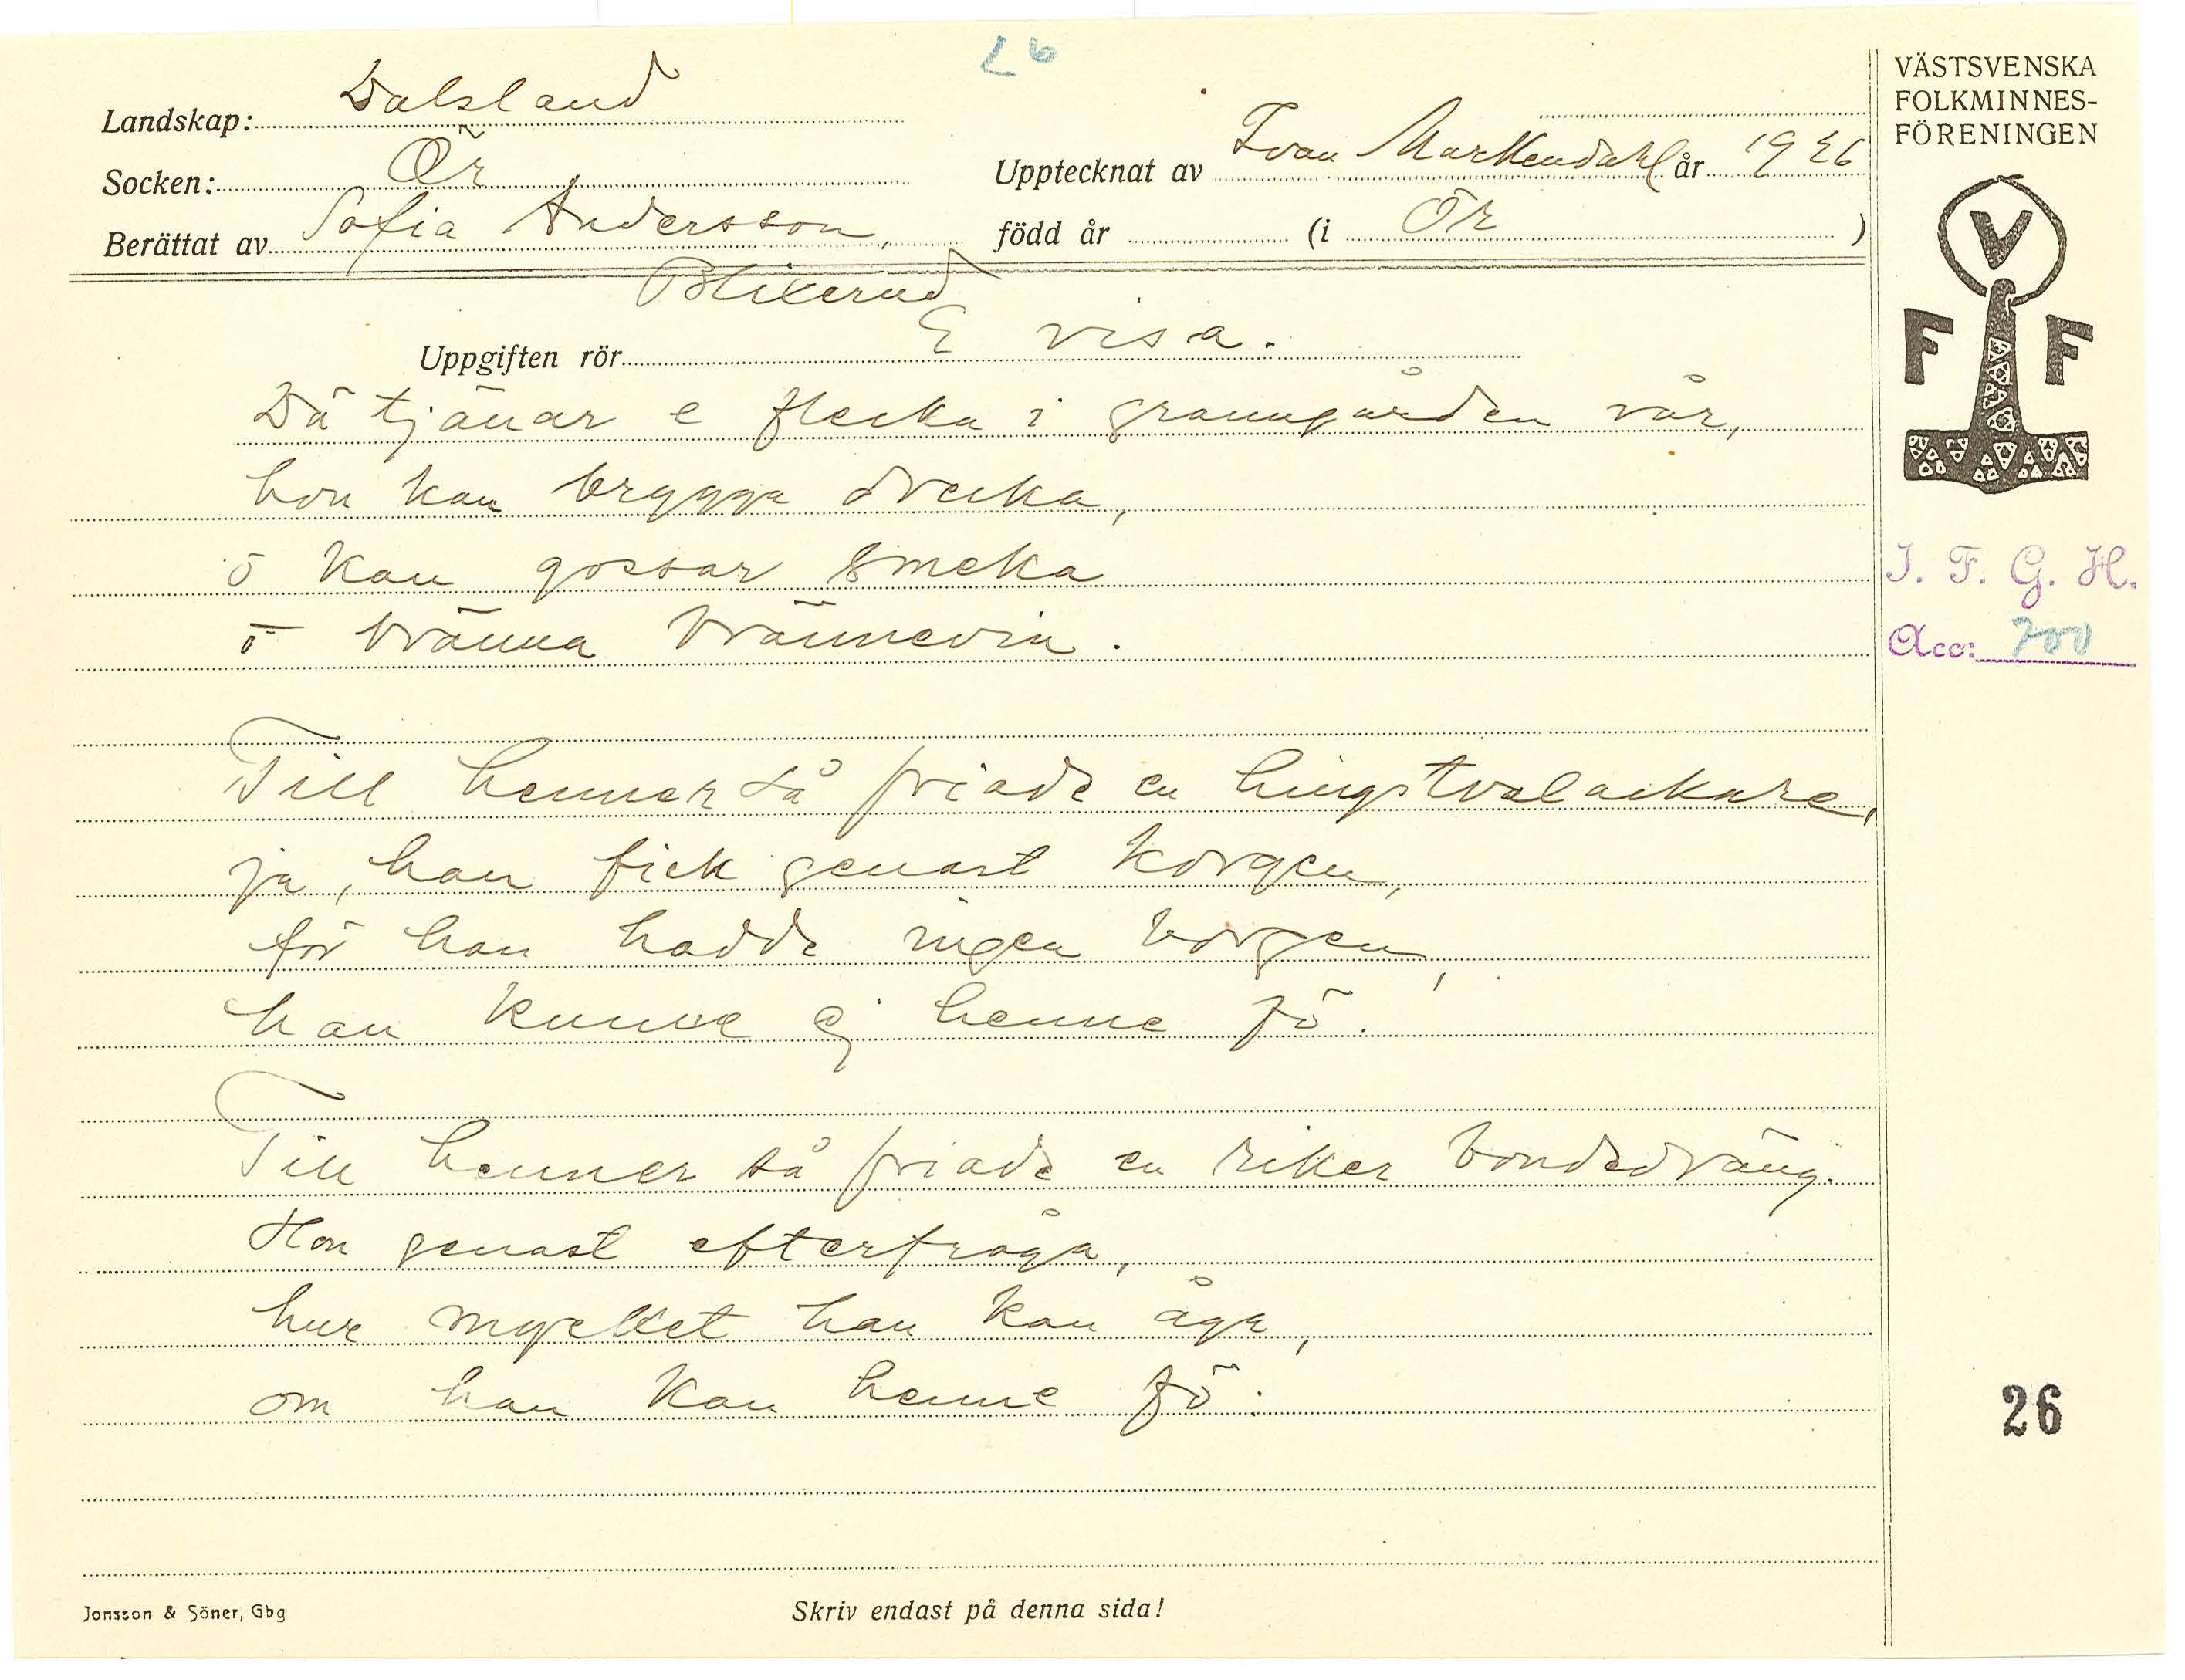 26
Landskap: Dalsland
Socken: Ör
Upptecknat av Ivan Markendahl år 1926
Berättat av Sofia Andersson,
född år (i Ör)
Blixerud
Uppgiften rör E visa.
Dä tjänar e flecka i granngården vår,
hon kan brygga drecka,
ö kan gossar smeka
ö bränna brännevin.
Till henner så friade en hingstvalackare,
ja, han fick genast korgen,
för han hadde ingen borgen,
han kunne ej henne fö.
Till henner så friade en riker bondedräng.
Hon genast efterfråga,
hur mycket han kan åga,
om han kan henne fö.
Jonsson & Söner, Gbg
Skriv endast på denna sida!
VÄSTSVENSKA
FOLKMINNES-
FÖRENINGEN
V
F F
I. F. G. H.
Acc: 700
26